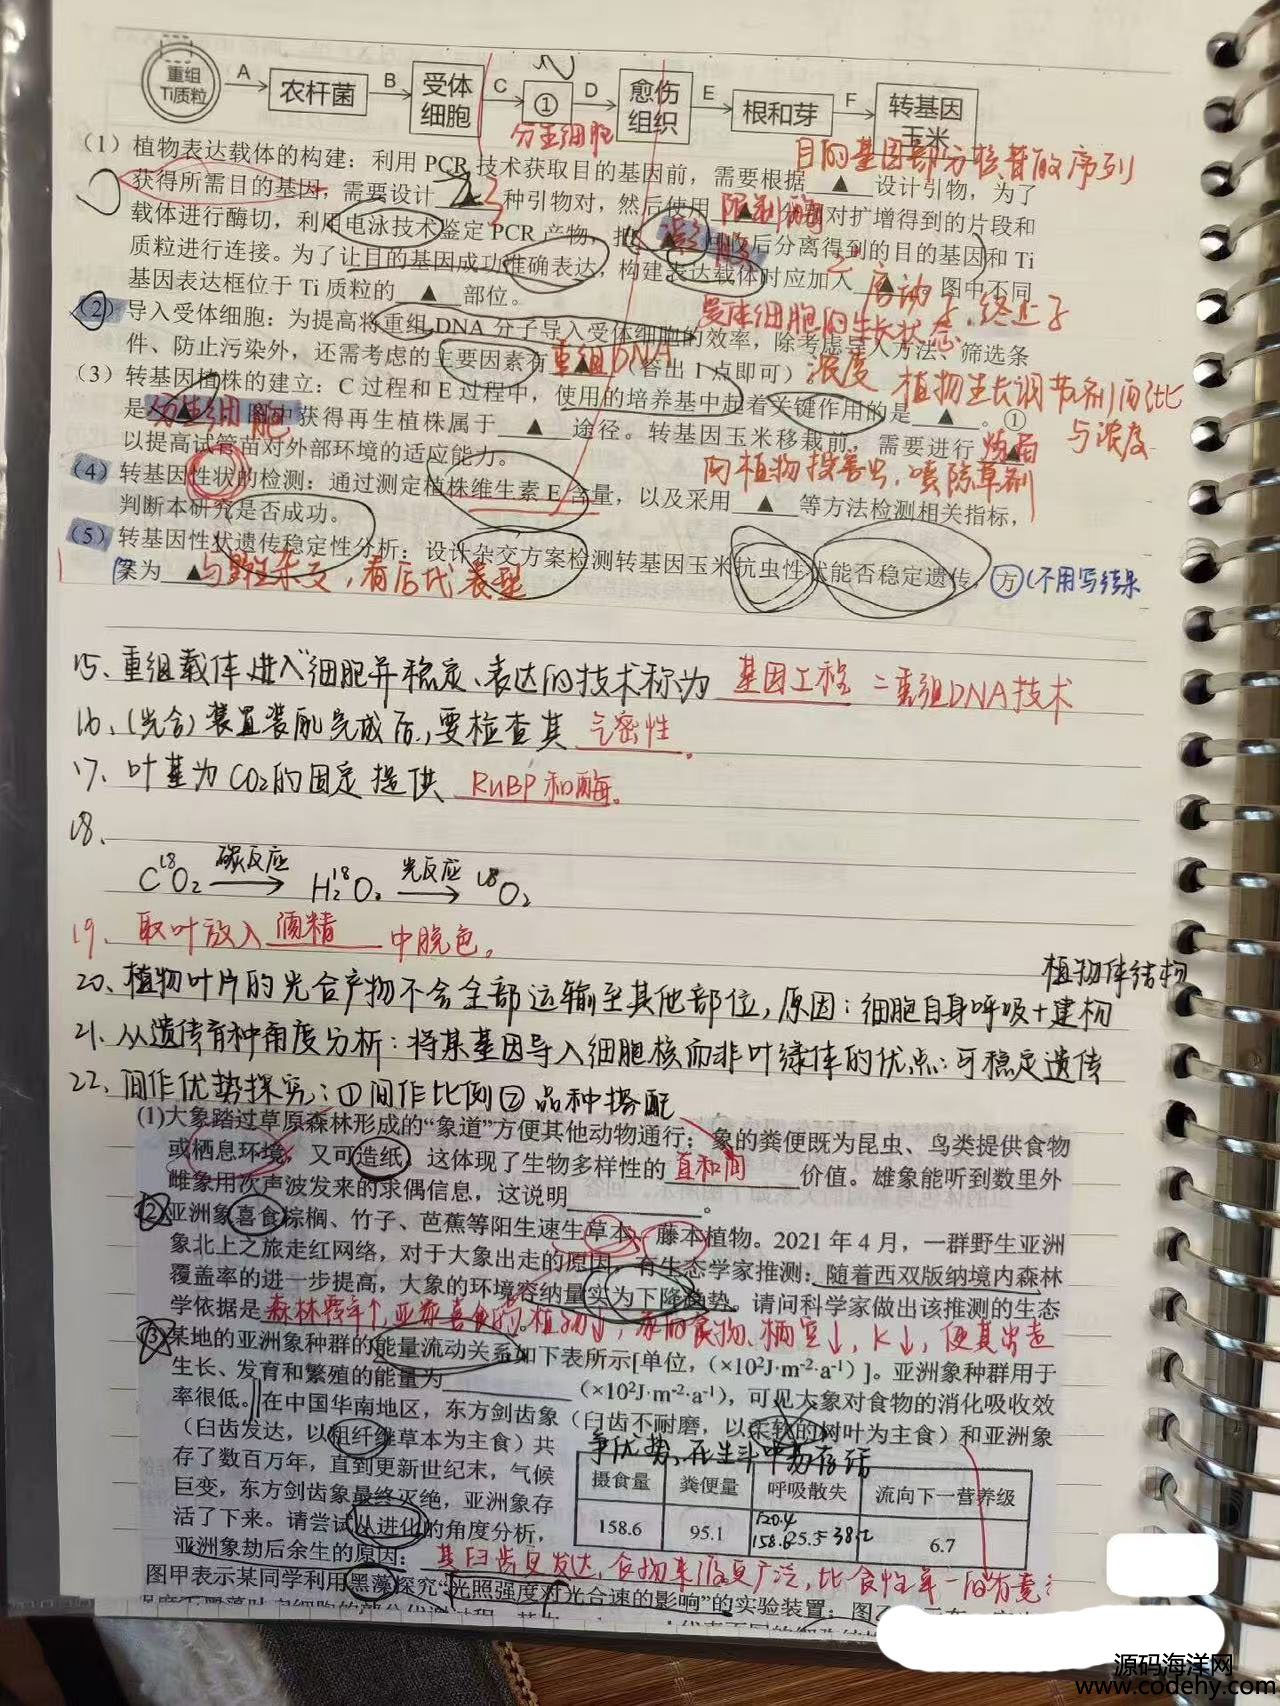 重组
Ti质粒
A
农杆菌
B
受体
细胞
C
①
D
愈伤
组织
E
根和芽
F
转基因
玉米
分生细胞
目的基因部分核苷酸序列
（1）植物表达载体的构建：利用 PCR 技术获取目的基因前，需要根据 ▲ 设计引物，为了
获得所需目的基因，需要设计 3 种引物对，然后使用 限制酶 对扩增得到的片段和
载体进行酶切，利用电泳技术鉴定 PCR 产物，回收后分离得到的目的基因和 Ti
质粒进行连接。为了让目的基因成功准确表达，构建表达载体时应加入 ▲ 图中不同
启动子、终止子
基因表达框位于 Ti 质粒的 ▲ 部位。
受体细胞的生长状态
（2）导入受体细胞：为提高将重组 DNA 分子导入受体细胞的效率，除考虑导入方法、筛选条
件、防止污染外，还需考虑的主要因素有 重组DNA（答出 1 点即可）浓度
植物生长调节剂配比
与浓度
（3）转基因植株的建立：C 过程和 E 过程中，使用的培养基中起着关键作用的是 ▲ 。①
是 分生细胞 图中获得再生植株属于 ▲ 途径。转基因玉米移栽前，需要进行 炼苗
以提高试管苗对外部环境的适应能力。
向植物接害虫，喷除草剂
（4）转基因性状的检测：通过测定植株维生素 E 含量，以及采用 ▲ 等方法检测相关指标，
判断本研究是否成功。
（5）转基因性状遗传稳定性分析：设计杂交方案检测转基因玉米抗虫性状能否稳定遗传，方（不用写结果
案为 ▲ 与野生杂交，看后代表型
15、重组载体进入细胞并稳定、表达的技术称为 基因工程 = 重组DNA技术
16、(光合)装置装配完成后，要检查其 气密性。
17、叶基为CO₂的固定提供 RuBP和酶。
18、
C¹⁸O₂ 碳反应 → H₂¹⁸O₂ 光反应 → ¹⁸O₂
19、取叶放入 酒精 中脱色。
植物体结构
20、植物叶片的光合产物不会全部运输至其他部位，原因：细胞自身呼吸+建构
21、从遗传育种角度分析：将某基因导入细胞核而非叶绿体的优点：可稳定遗传
22、间作优势探究：①间作比例②品种搭配
(1)大象踏过草原森林形成的“象道”方便其他动物通行；象的粪便既为昆虫、鸟类提供食物
或栖息环境，又可造纸，这体现了生物多样性的 直和间 价值。雄象能听到数里外
雌象用次声波发来的求偶信息，这说明 。
(2)亚洲象喜食棕榈、竹子、芭蕉等阳生速生草本、藤本植物。2021 年 4 月，一群野生亚洲
象北上之旅走红网络，对于大象出走的原因，有生态学家推测：随着西双版纳境内森林
覆盖率的进一步提高，大象的环境容纳量实为下降趋势。请问科学家做出该推测的生态
学依据是 森林覆率↑，亚象喜食的植物↓，象的食物、栖息↓，K↓，使其出走
(3)某地的亚洲象种群的能量流动关系如下表所示[单位，（×10²J·m⁻²·a⁻¹）]。亚洲象种群用于
生长、发育和繁殖的能量为 （×10²J·m⁻²·a⁻¹），可见大象对食物的消化吸收效
率很低。在中国华南地区，东方剑齿象（臼齿不耐磨，以柔软的树叶为主食）和亚洲象
（臼齿发达，以粗纤维草本为主食）共
存了数百万年，直到更新世纪末，气候
巨变，东方剑齿象最终灭绝，亚洲象存
活了下来。请尝试从进化的角度分析，
亚洲象劫后余生的原因：
争优势，在生斗中易存活
摄食量 粪便量 呼吸散失 流向下一营养级
158.6 95.1 6.7
其臼齿更发达，食物来源更广泛，比食性单一的有竞
图甲表示某同学利用黑藻探究“光照强度对光合速的影响”的实验装置；
源码海洋网
www.codehy.com